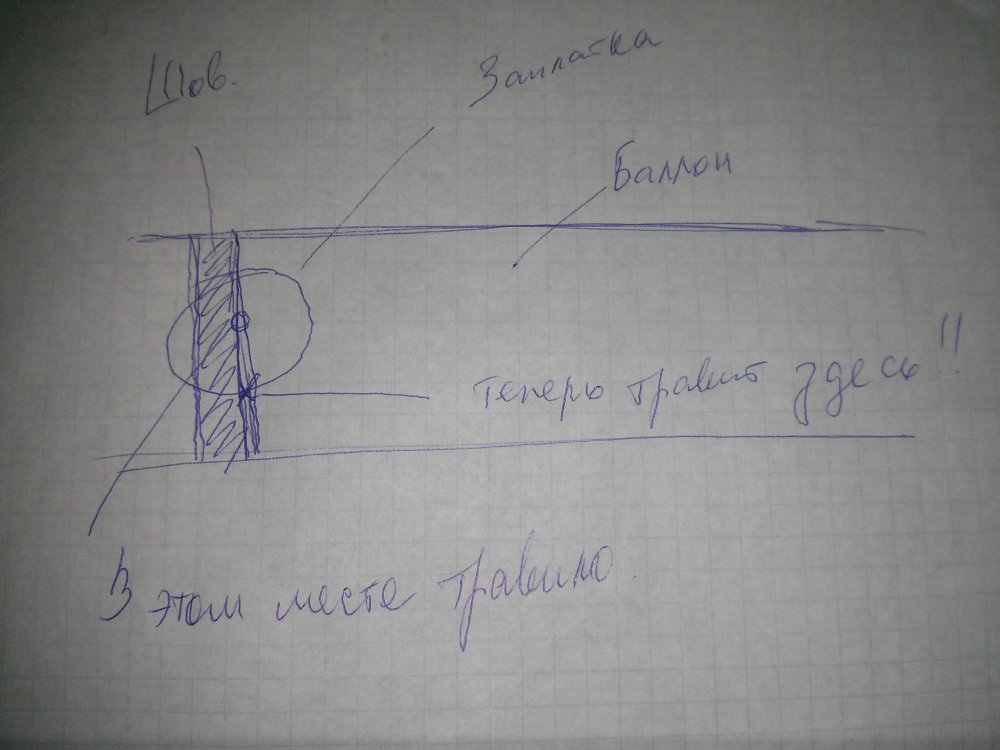 Шов.
Заплатка
Баллон
теперь травит здесь!!
В этом месте травило.